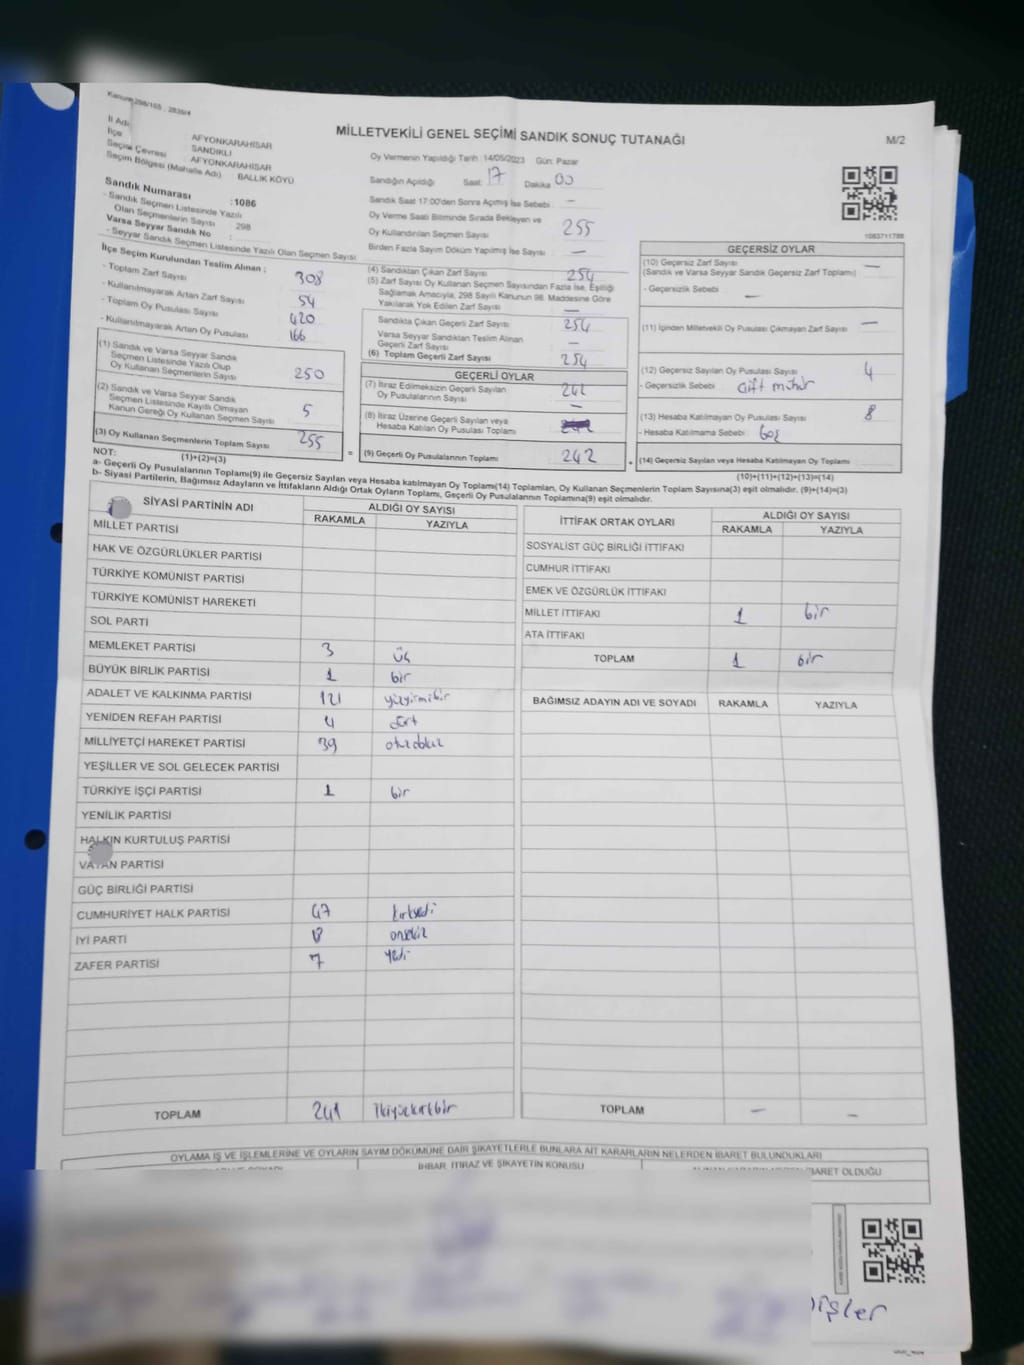 Kanun 298/105 , 2839/4
MİLLETVEKİLİ GENEL SEÇİMİ SANDIK SONUÇ TUTANAĞI
M/2
İl Adı AFYONKARAHİSAR
İlçe SANDIKLI
Seçim Çevresi AFYONKARAHİSAR
Seçim Bölgesi (Mahalle Adı) BALLIK KÖYÜ
Sandık Numarası :1086
- Sandık Seçmen Listesinde Yazılı
Olan Seçmenlerin Sayısı 298
Varsa Seyyar Sandık No :
- Seyyar Sandık Seçmen Listesinde Yazılı Olan Seçmen Sayısı
Oy Vermenin Yapıldığı Tarih :14/05/2023 Gün: Pazar
Sandığın Açıldığı Saat: 17 Dakika 00
Sandık Saat 17:00'den Sonra Açımış İse Sebebi : —
Oy Verme Saati Bitiminde Sırada Bekleyen ve
Oy Kullandırılan Seçmen Sayısı 255
Birden Fazla Sayım Döküm Yapılmış İse Sayısı —
1083711788
İlçe Seçim Kurulundan Teslim Alınan :
- Toplam Zarf Sayısı 308
- Kullanılmayarak Artan Zarf Sayısı 54
- Toplam Oy Pusulası Sayısı 420
- Kullanılmayarak Artan Oy Pusulası 166
(1) Sandık ve Varsa Seyyar Sandık
Seçmen Listesinde Yazılı Olup
Oy Kullanan Seçmenlerin Sayısı 250
(2) Sandık ve Varsa Seyyar Sandık
Seçmen Listesinde Kayıtlı Olmayan
Kanun Gereği Oy Kullanan Seçmen Sayısı 5
(3) Oy Kullanan Seçmenlerin Toplam Sayısı 255
(1)+(2)=(3)
(4) Sandıktan Çıkan Zarf Sayısı 254
(5) Zarf Sayısı Oy Kullanan Seçmen Sayısından Fazla İse, Eşitliği
Sağlamak Amacıyla, 298 Sayılı Kanunun 98. Maddesine Göre
Yakılarak Yok Edilen Zarf Sayısı —
Sandıkta Çıkan Geçerli Zarf Sayısı 254
Varsa Seyyar Sandıktan Teslim Alınan
Geçerli Zarf Sayısı —
(6) Toplam Geçerli Zarf Sayısı 254
GEÇERLİ OYLAR
(7) İtiraz Edilmeksizin Geçerli Sayılan
Oy Pusulalarının Sayısı 242
(8) İtiraz Üzerine Geçerli Sayılan veya —
Hesaba Katılan Oy Pusulası Toplamı
= (9) Geçerli Oy Pusulalarının Toplamı 242
GEÇERSİZ OYLAR
(10) Geçersiz Zarf Sayısı —
(Sandık ve Varsa Seyyar Sandık Geçersiz Zarf Toplamı)
- Geçersizlik Sebebi : —
(11) İçinden Milletvekili Oy Pusulası Çıkmayan Zarf Sayısı —
(12) Geçersiz Sayılan Oy Pusulası Sayısı 4
- Geçersizlik Sebebi : Çift mühür
(13) Hesaba Katılmayan Oy Pusulası Sayısı 8
- Hesaba Katılmama Sebebi : boş
+ (14) Geçersiz Sayılan veya Hesaba Katılmayan Oy Toplamı
(10)+(11)+(12)+(13)=(14)
NOT:
a- Geçerli Oy Pusulalarının Toplamı(9) ile Geçersiz Sayılan veya Hesaba katılmayan Oy Toplamı(14) Toplamları, Oy Kullanan Seçmenlerin Toplam Sayısına(3) eşit olmalıdır. (9)+(14)=(3)
b- Siyasi Partilerin, Bağımsız Adayların ve İttifakların Aldığı Ortak Oyların Toplamı, Geçerli Oy Pusulalarının Toplamına(9) eşit olmalıdır.
SİYASİ PARTİNİN ADI ALDIĞI OY SAYISI
RAKAMLA YAZIYLA
MİLLET PARTİSİ
HAK VE ÖZGÜRLÜKLER PARTİSİ
TÜRKİYE KOMÜNİST PARTİSİ
TÜRKİYE KOMÜNİST HAREKETİ
SOL PARTİ
MEMLEKET PARTİSİ 3 üç
BÜYÜK BİRLİK PARTİSİ 1 bir
ADALET VE KALKINMA PARTİSİ 121 yüzyirmibir
YENİDEN REFAH PARTİSİ 4 dört
MİLLİYETÇİ HAREKET PARTİSİ 39 otuzdokuz
YEŞİLLER VE SOL GELECEK PARTİSİ
TÜRKİYE İŞÇİ PARTİSİ 1 bir
YENİLİK PARTİSİ
HALKIN KURTULUŞ PARTİSİ
VATAN PARTİSİ
GÜÇ BİRLİĞİ PARTİSİ
CUMHURİYET HALK PARTİSİ 47 kırkyedi
İYİ PARTİ 18 onsekiz
ZAFER PARTİSİ 7 yedi
TOPLAM 241 İkiyüzkırkbir
İTTİFAK ORTAK OYLARI ALDIĞI OY SAYISI
RAKAMLA YAZIYLA
SOSYALİST GÜÇ BİRLİĞİ İTTİFAKI
CUMHUR İTTİFAKI
EMEK VE ÖZGÜRLÜK İTTİFAKI
MİLLET İTTİFAKI 1 bir
ATA İTTİFAKI
TOPLAM 1 bir
BAĞIMSIZ ADAYIN ADI VE SOYADI RAKAMLA YAZIYLA
TOPLAM — —
OYLAMA İŞ VE İŞLEMLERİNE VE OYLARIN SAYIM DÖKÜMÜNE DAİR ŞİKAYETLERLE BUNLARA AİT KARARLARIN NELERDEN İBARET BULUNDUKLARI
İHBAR, İTİRAZ VE ŞİKAYETİN KONUSU